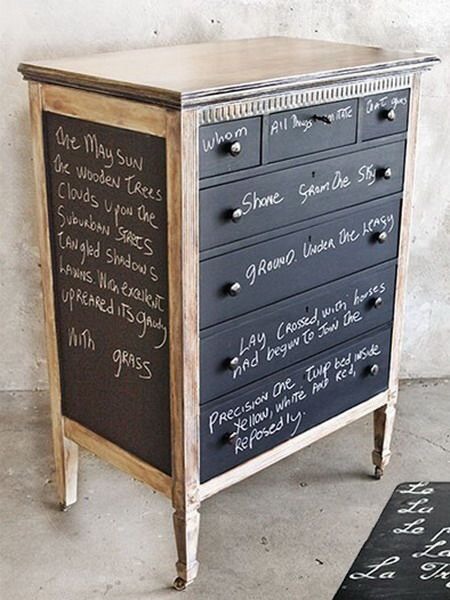 The May Sun
the wooden trees
Clouds upon the
Suburban Streets
tangled shadows
Lawns. With excellent
upreared its gawdy
With grass
Whom
All Things imitate
that
Shone from the Sky
ground. Under the leafy
Lay crossed, with horses
had begun to join the
Precision the Tulip bed inside
yellow, white and red,
reposedly.
Le
La
Le
La
La